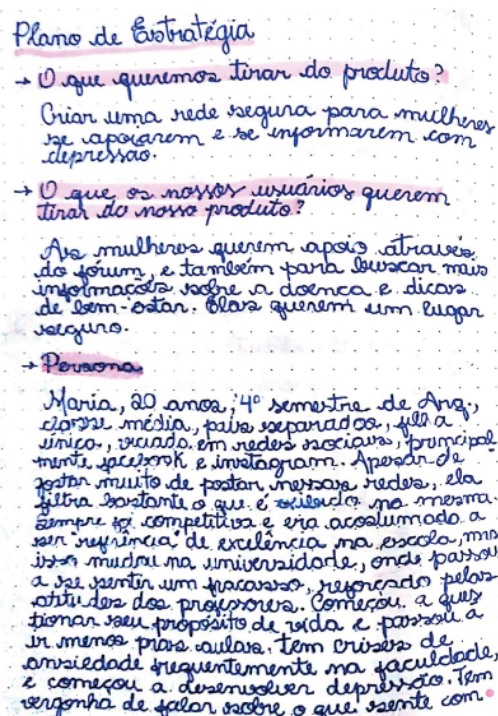 Plano de Estratégia
→ O que queremos tirar do produto?
Criar uma rede segura para mulheres
se apoiarem e se informarem com
depressão.
→ O que os nossos usuários querem
tirar do nosso produto?
As mulheres querem apoio através
do fórum, e também para buscar mais
informações sobre a doença e dicas
de bem-estar. Elas querem um lugar
seguro.
→ Persona
Maria, 20 anos, 4º semestre de Arq.,
classe média, pais separados, filha
única, viciada em redes sociais, principal
mente facebook e instagram. Apesar de
gostar muito de postar nessas redes, ela
filtra bastante o que é exibido na mesma.
Sempre foi competitiva e era acostumada a
ser "referência" de excelência na escola, mas
isso mudou na universidade, onde passou
a se sentir um fracasso, reforçado pelas
atitudes dos professores. Começou a ques
tionar seu propósito de vida e passou a
ir menos pras aulas. Tem crises de
ansiedade frequentemente na faculdade,
e começou a desenvolver depressão. Tem
vergonha de falar sobre o que sente com